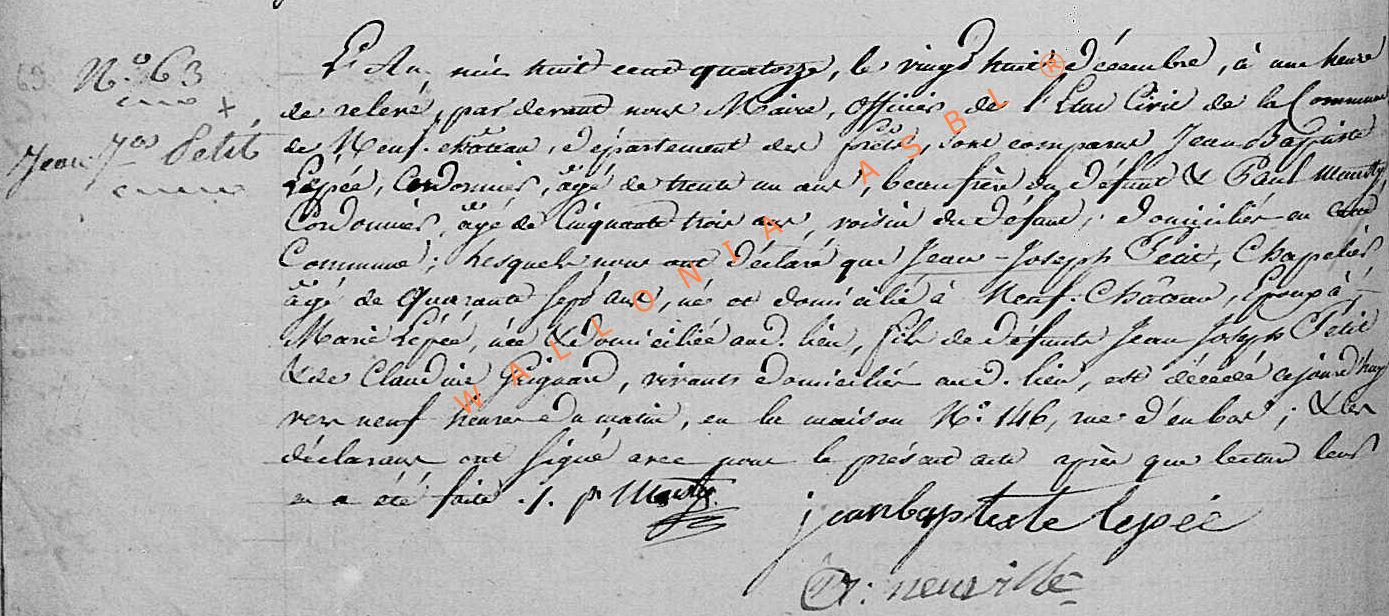 N.º 63
Jean Jos Petit
L'An mil huit cent quatorze, le vingt huit décembre, à une heure
de relevé, par devant nous Maire, Officier de l'Etat Civil de la Commune
de Neuf-château, département des forêts, sont comparus Jean-Baptiste
Lépée, Cordonnier, âgé de trente un ans, beaufrère du défunt & Paul
Cordonnier, âgé de Cinquante trois ans, voisin du défunt; domiciliés en cette
Commune; lesquels nous ont déclaré que Jean-Joseph Petit, Chapelier
âgé de Quarante sept ans, né et domicilié à Neuf-Château, Epoux à
Marie Lépée, née & domiciliée aud. lieu, fils de défunts Jean Joseph Petit
& de Claudine Guignard, vivants domiciliés aud. lieu, est décédé cejourd'huy
vers neuf heures du matin, en la maison N.º 146, rue d'en bas; & les
déclarans ont signé avec nous le présent acte après que lecture leur
en a été faite ./.
jeanbaptiste lepée
neuville
WALLONIA ASBL ®